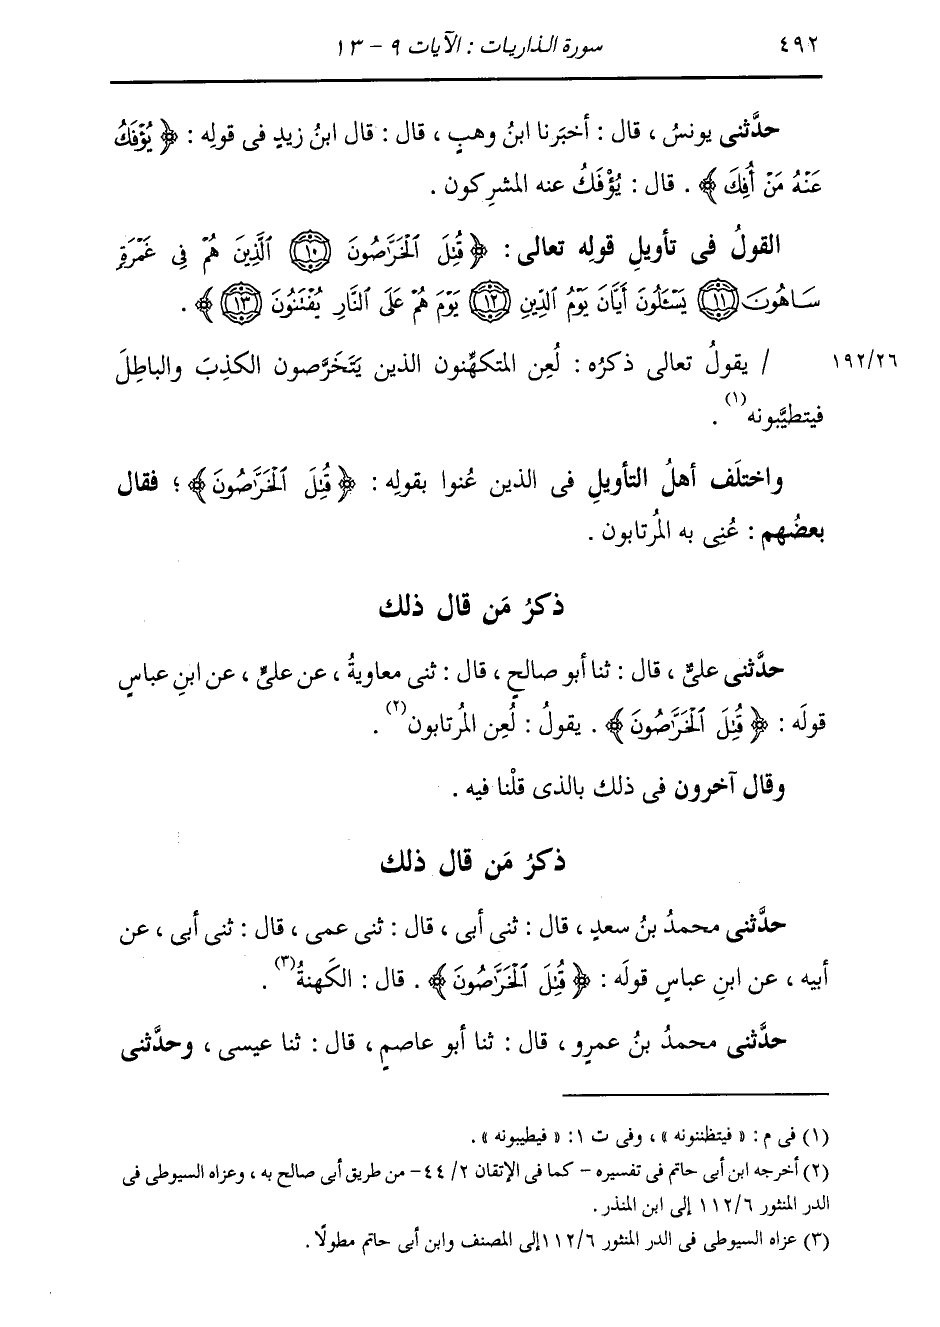 ٤٩٢ سورة الذاريات : الآيات ٩ - ١٣
حدَّثنى يونسُ ، قال : أخبَرنا ابنُ وهبٍ ، قال : قال ابنُ زيدٍ فى قولِه : ﴿ يُؤْفَكُ
عَنْهُ مَنْ أُفِكَ ﴾ . قال : يُؤْفَكُ عنه المشرِكون .
القولُ فى تأويلِ قولِه تعالى : ﴿ قُتِلَ ٱلْخَرَّٰصُونَ ۝١٠ ٱلَّذِينَ هُمْ فِى غَمْرَةٍ
سَاهُونَ ۝١١ يَسْـَٔلُونَ أَيَّانَ يَوْمُ ٱلدِّينِ ۝١٢ يَوْمَ هُمْ عَلَى ٱلنَّارِ يُفْتَنُونَ ۝١٣ ﴾ .
١٩٢/٢٦ / يقولُ تعالى ذكرُه : لُعِن المتكهِّنون الذين يَتَخَرَّصون الكذِبَ والباطِلَ
فيتطيَّبونه(١) .
واختلَف أهلُ التأويلِ فى الذين عُنوا بقولِه : ﴿ قُتِلَ ٱلْخَرَّٰصُونَ ﴾ ؛ فقال
بعضُهم : عُنِى به المُرتابون .
ذكرُ مَن قال ذلك
حدَّثنى علىٌّ ، قال : ثنا أبو صالحٍ ، قال : ثنى معاويةُ ، عن علىٍّ ، عن ابنِ عباسٍ
قولَه : ﴿ قُتِلَ ٱلْخَرَّٰصُونَ ﴾ . يقولُ : لُعِن المُرتابون(٢) .
وقال آخرون فى ذلك بالذى قلْنا فيه .
ذكرُ مَن قال ذلك
حدَّثنى محمدُ بنُ سعدٍ ، قال : ثنى أبى ، قال : ثنى عمى ، قال : ثنى أبى ، عن
أبيه ، عن ابنِ عباسٍ قولَه : ﴿ قُتِلَ ٱلْخَرَّٰصُونَ ﴾ . قال : الكَهنةُ(٣) .
حدَّثنى محمدُ بنُ عمرٍو ، قال : ثنا أبو عاصمٍ ، قال : ثنا عيسى ، وحدَّثنى
(١) فى م : « فيتظننونه » ، وفى ت ١ : « فيطيبونه » .
(٢) أخرجه ابن أبى حاتم فى تفسيره - كما فى الإتقان ٢/ ٤٤ - من طريق أبى صالح به ، وعزاه السيوطى فى
الدر المنثور ١١٢/٦ إلى ابن المنذر .
(٣) عزاه السيوطى فى الدر المنثور ١١٢/٦ إلى المصنف وابن أبى حاتم مطولًا .